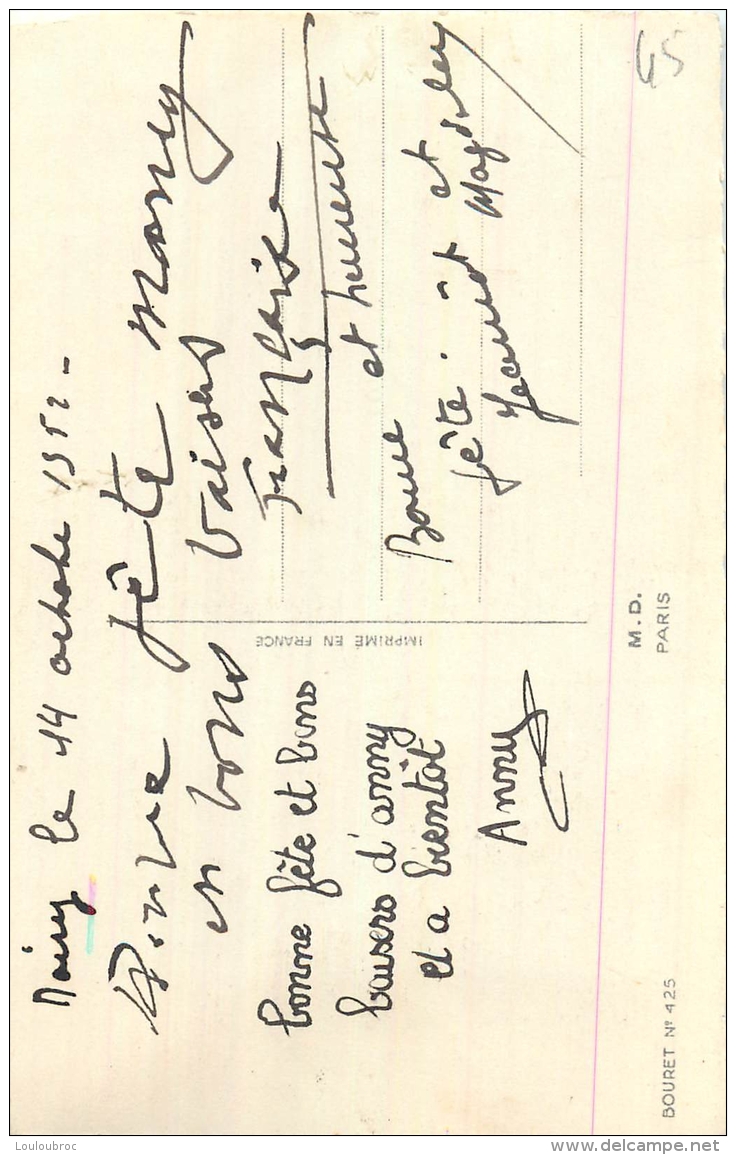 le 14 octobre 1952 -
Bonne fête Mamy
en bons baisers
Française
bonne fête et bons
baisers d'anny
et a bientôt
Anny
et heureuse
Bonne
fête. et
Jeannot Magdeley
IMPRIMÉ EN FRANCE
M.D.
PARIS
BOURET Nº 425
45
Louloubroc
www.delcampe.net